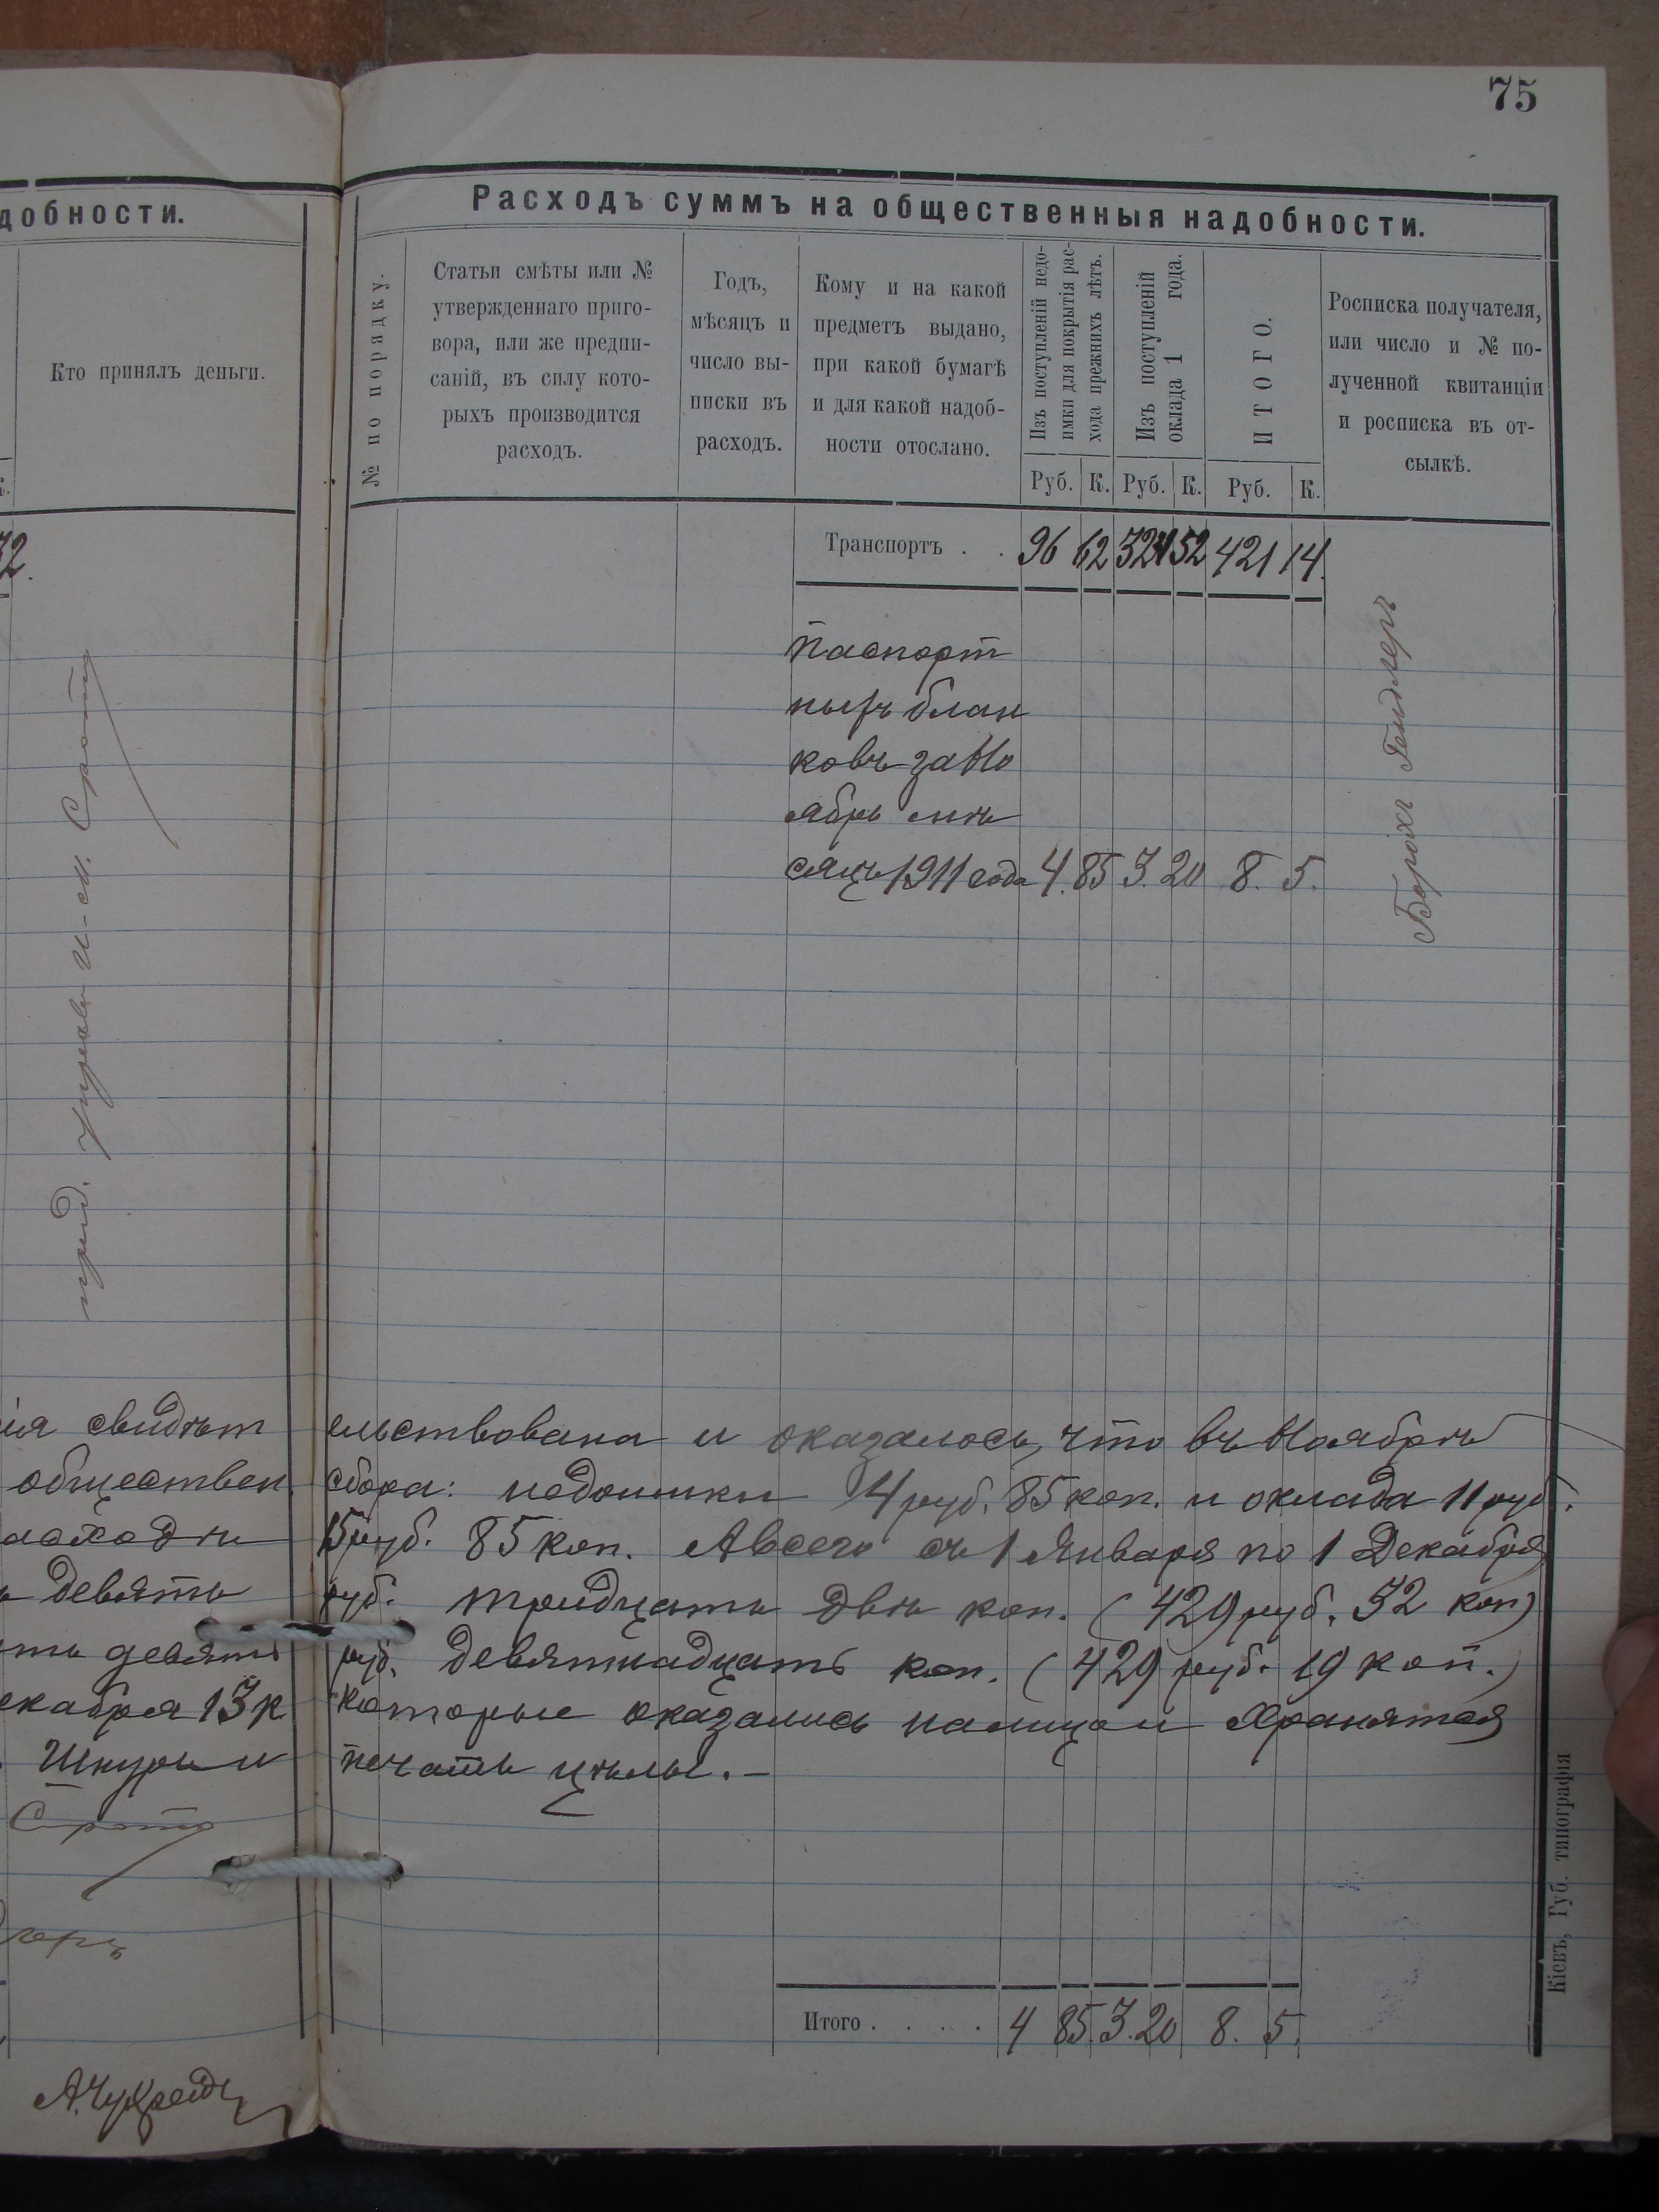 75
добности.
Кто принялъ деньги.
К.
32.
пред. управы И. М.
ія свидѣт
обществен
расходѣ
девять
ть девять
екабря 13 к
Шкурин
А. Чухрай
Расходъ суммъ на общественныя надобности.
№ по порядку.
Статьи смѣты или №
утвержденнаго приго-
вора, или же предпи-
саній, въ силу кото-
рыхъ производится
расходъ.
Годъ,
мѣсяцъ и
число вы-
писки въ
расходъ.
Кому и на какой
предметъ выдано,
при какой бумагѣ
и для какой надоб-
ности отослано.
Изъ поступленій недо-
имки для покрытія рас-
хода прежнихъ лѣтъ.
Изъ поступленій
оклада 1 года.
ИТОГО.
Росписка получателя,
или число и № по-
лученной квитанціи
и росписка въ от-
сылкѣ.
Руб. К. Руб. К. Руб. К.
Транспортъ . . 96 62 324 52 421 14.
паспорт
ныхъ блан
ковъ за Но
ябрь мѣ
сяцъ 1911 года 4. 85 3. 20 8. 5.
Борохъ Гендлеръ
ельствована и оказалось, что въ Ноябрѣ
сбора: недоимки 4 руб. 85 коп. и оклада 11 руб.
15 руб. 85 коп. А всего съ 1 Января по 1 Декабря
руб. тридцать двѣ коп. (429 руб. 32 коп)
руб. девятнадцать коп. (429 руб. 19 коп.)
которые оказались налицо и хранятся
печать цѣлы. —
Итого . . . . 4 85. 3. 20 8. 5.
Кіевъ, Губ. типографія